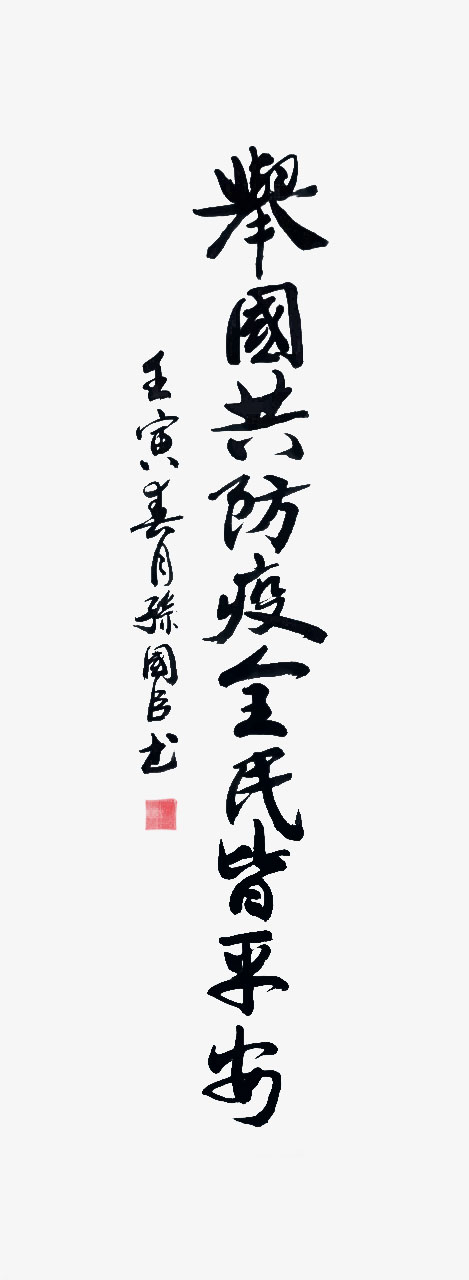 舉國共防疫全民皆平安
壬寅春月孫國臣书